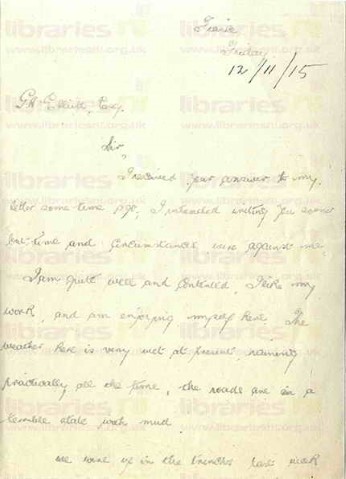 France
Friday
12/11/15
G.H. Elliott, Esq.
Sir
I received your answer to my
letter some time ago, I intended writing you sooner
but time and circumstances were against me.
I am quite well and contented, I like my
work, and am enjoying myself here. The
weather here is very wet at present raining
practically all the time, the roads are in a
terrible state with mud.
we were up in the trenches last week